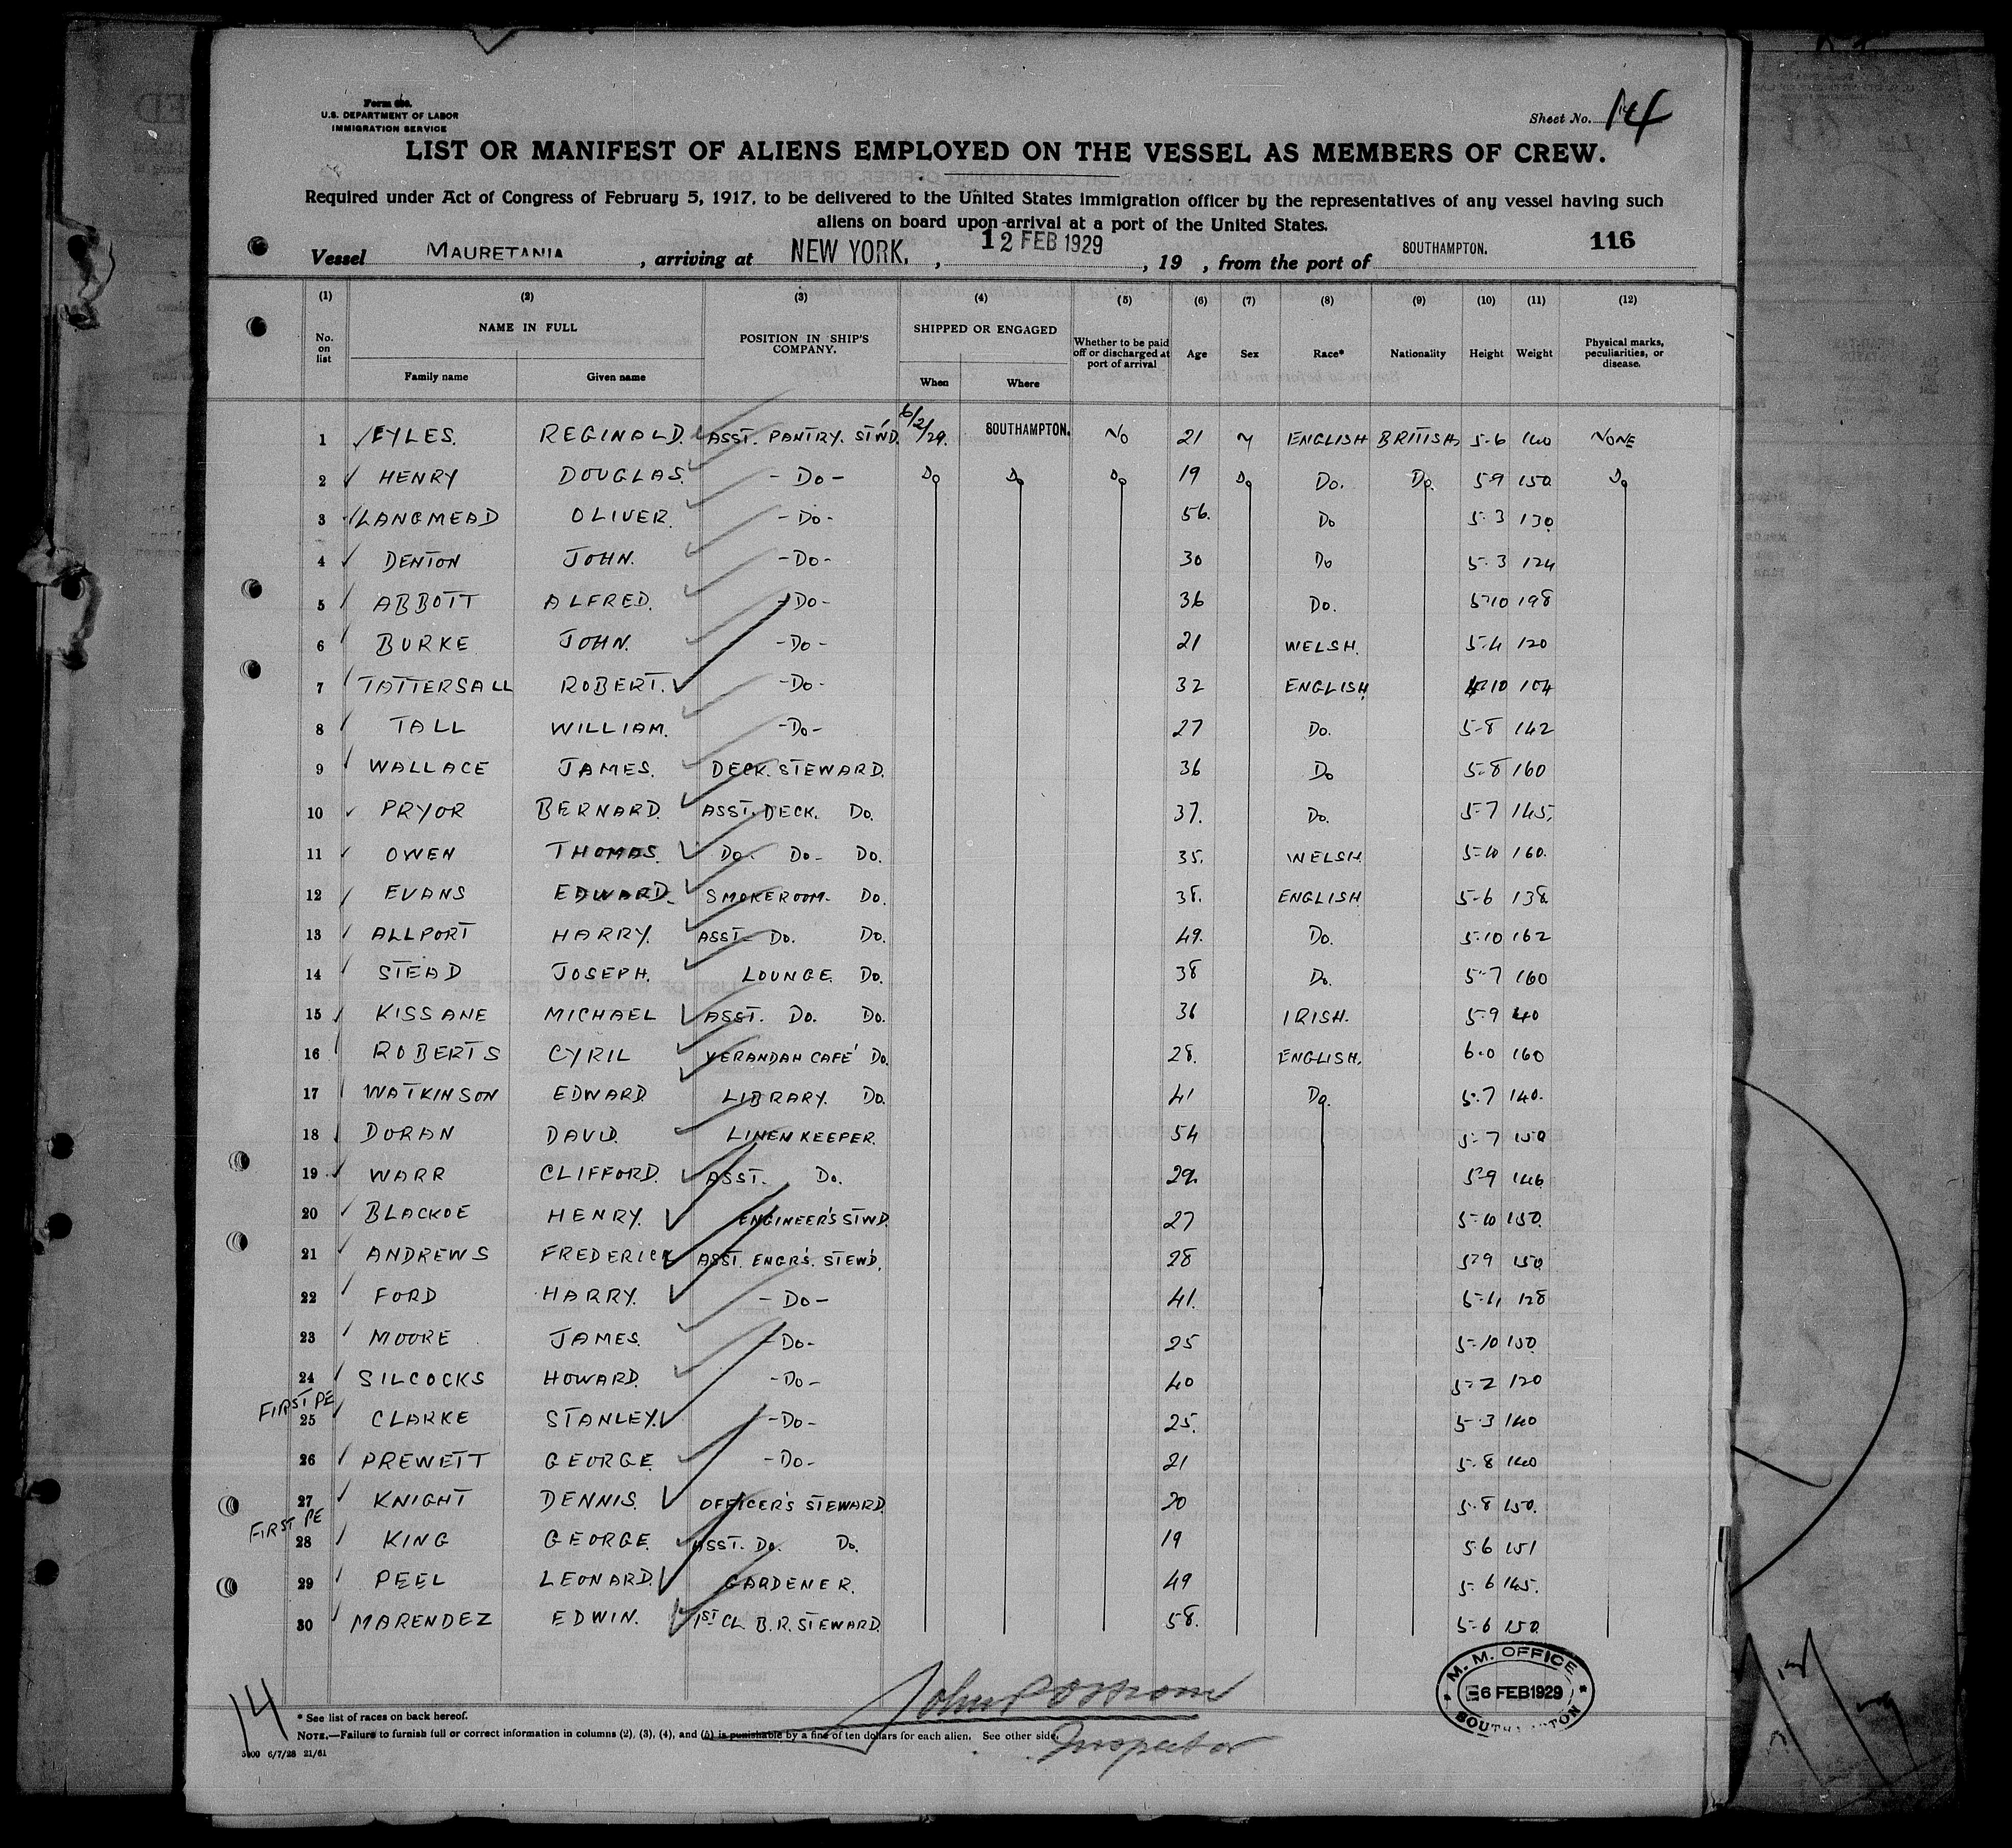 Form 680.
U.S. DEPARTMENT OF LABOR
IMMIGRATION SERVICE
Sheet No. 14
LIST OR MANIFEST OF ALIENS EMPLOYED ON THE VESSEL AS MEMBERS OF CREW.
Required under Act of Congress of February 5, 1917, to be delivered to the United States immigration officer by the representatives of any vessel having such
aliens on board upon arrival at a port of the United States.
116
Vessel MAURETANIA, arriving at NEW YORK, 12 FEB 1929, 19 , from the port of SOUTHAMPTON.
(1) (2) (3) (4) (5) (6) (7) (8) (9) (10) (11) (12)
No. on list NAME IN FULL Family name Given name POSITION IN SHIP'S COMPANY. SHIPPED OR ENGAGED When Where Whether to be paid off or discharged at port of arrival Age Sex Race* Nationality Height Weight Physical marks, peculiarities, or disease.
1 EYLES. REGINALD. ASST. PANTRY. ST'WD. 6/2/29. SOUTHAMPTON. NO 21 M ENGLISH BRITISH 5-6 140 NONE
2 HENRY DOUGLAS. -DO- DO DO DO 19 DO DO. DO. 5-9 150 DO
3 LANGMEAD OLIVER. -DO- 56. DO 5-3 130
4 DENTON JOHN. -DO- 30 DO 5-3 124
5 ABBOTT ALFRED. -DO- 36 DO. 5-10 198
6 BURKE JOHN. -DO- 21 WELSH. 5-4 120
7 TATTERSALL ROBERT. -DO- 32 ENGLISH 4-10 104
8 TALL WILLIAM. -DO- 27 DO. 5-8 142
9 WALLACE JAMES. DECK. STEWARD. 36 DO 5-8 160
10 PRYOR BERNARD. ASST. DECK. DO. 37. DO. 5-7 145.
11 OWEN THOMAS. DO. DO- DO. 35. WELSH. 5-10 160.
12 EVANS EDWARD. SMOKEROOM- DO. 38. ENGLISH 5-6 138
13 ALLPORT HARRY. ASST- DO. DO. 49. DO. 5-10 162
14 STEAD JOSEPH. LOUNGE. DO. 38 DO. 5-7 160
15 KISSANE MICHAEL ASST. DO. DO. 36 IRISH. 5-9 140
16 ROBERTS CYRIL VERANDAH CAFÉ DO. 28. ENGLISH. 6-0 160
17 WATKINSON EDWARD LIBRARY. DO. 41 DO. 5-7 140.
18 DORAN DAVID. LINEN KEEPER. 54 5-7 150
19 WARR CLIFFORD. ASST. DO. 29. 5-9 146
20 BLACKOE HENRY. ENGINEER'S STWD. 27 5-10 150.
21 ANDREWS FREDERICK ASST. ENGR'S. STEW'D. 28 5-9 150
22 FORD HARRY. -DO- 41. 5-4 128
23 MOORE JAMES. -DO- 25 5-10 150.
24 SILCOCKS HOWARD. -DO- 40 5-2 120
FIRST PE
25 CLARKE STANLEY. -DO- 25. 5-3 140
26 PREWETT GEORGE. -DO- 21 5-8 140
27 KNIGHT DENNIS. OFFICER'S STEWARD. 20 5-8 150.
FIRST PE
28 KING GEORGE. ASST. DO. DO. 19 5-6 151
29 PEEL LEONARD. GARDENER. 49 5-6 145.
30 MARENDEZ EDWIN. 1ST CL B.R. STEWARD. 58. 5-6 150.
M. M. OFFICE
6 FEB 1929
SOUTHAMPTON
14
* See list of races on back hereof.
NOTE.—Failure to furnish full or correct information in columns (2), (3), (4), and (5) is punishable by a fine of ten dollars for each alien. See other side.
Inspector
6/7/28 21/61